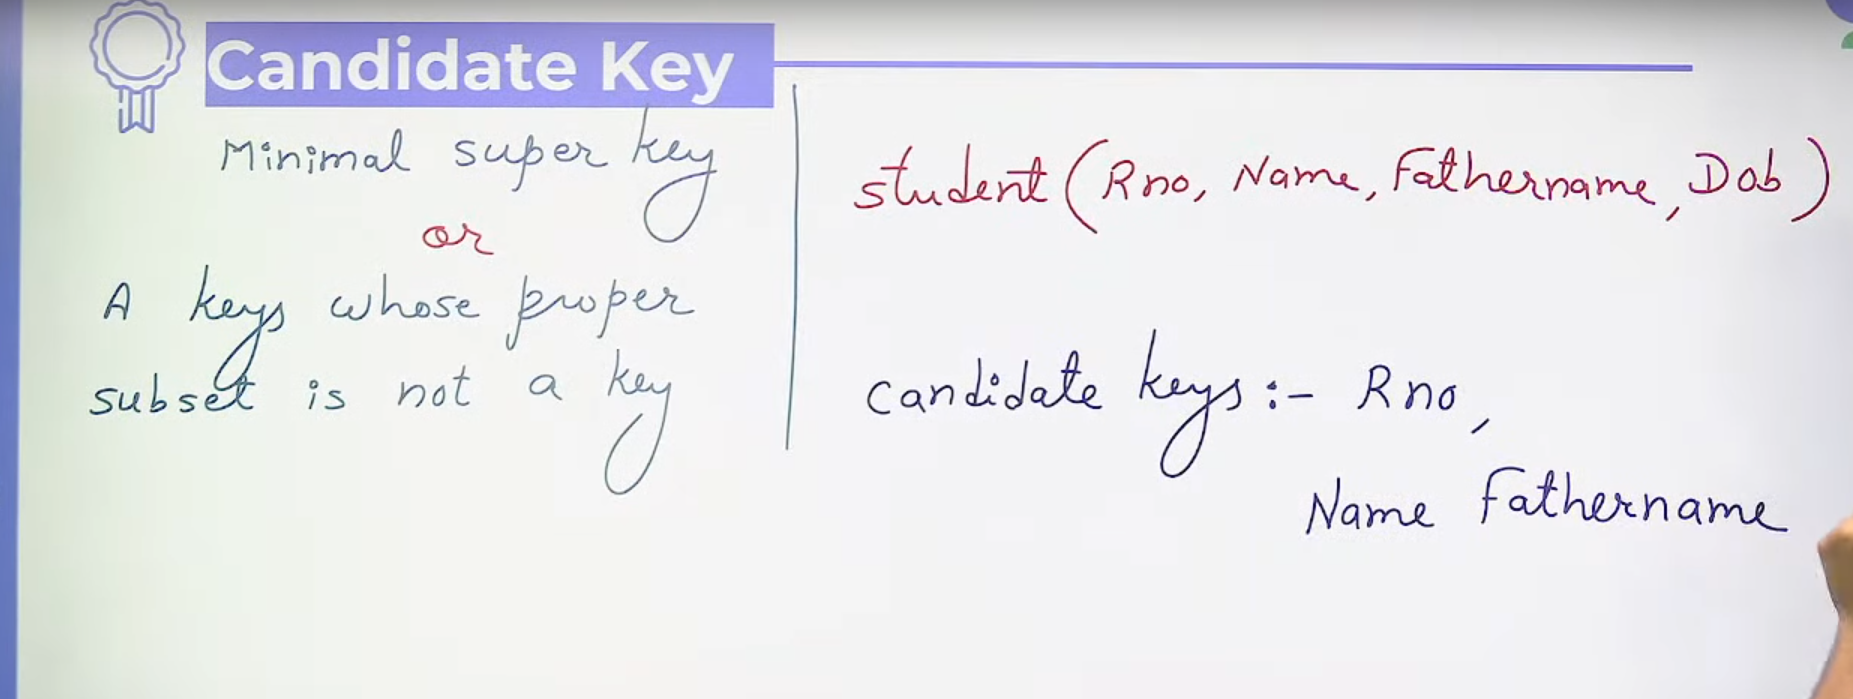 Candidate Key
Minimal super key
or
A keys whose proper
subset is not a key
student (Rno, Name, Fathername, Dob)
candidate keys :- Rno,
Name Fathername